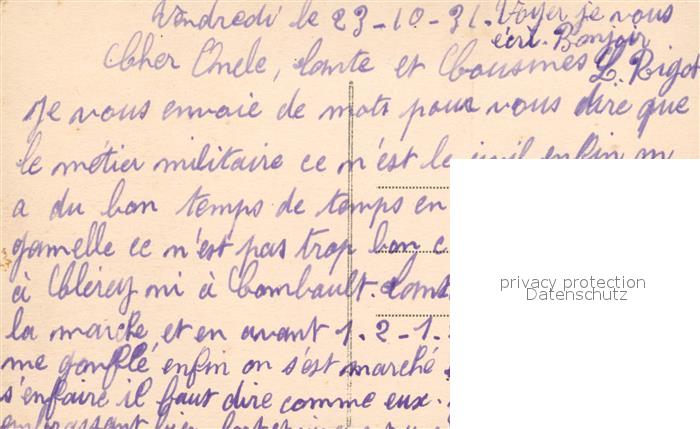 Vendredi le 23-10-31. Voyer je vous
écri. Bonjoir
Cher Oncle, tante et Cousines L. Rigot
Je vous envoie de mots pour vous dire que
le métier militaire ce n'est le civil enfin
a du bon temps de temps en
gamelle ce n'est pas trop bon
à Clércy ni à Combault.
la marche et en avant 1.2-1.
me gonflé enfin on s'est marché
s'enfaire il faut dire comme eux.
embrassant bien
privacy protection
Datenschutz